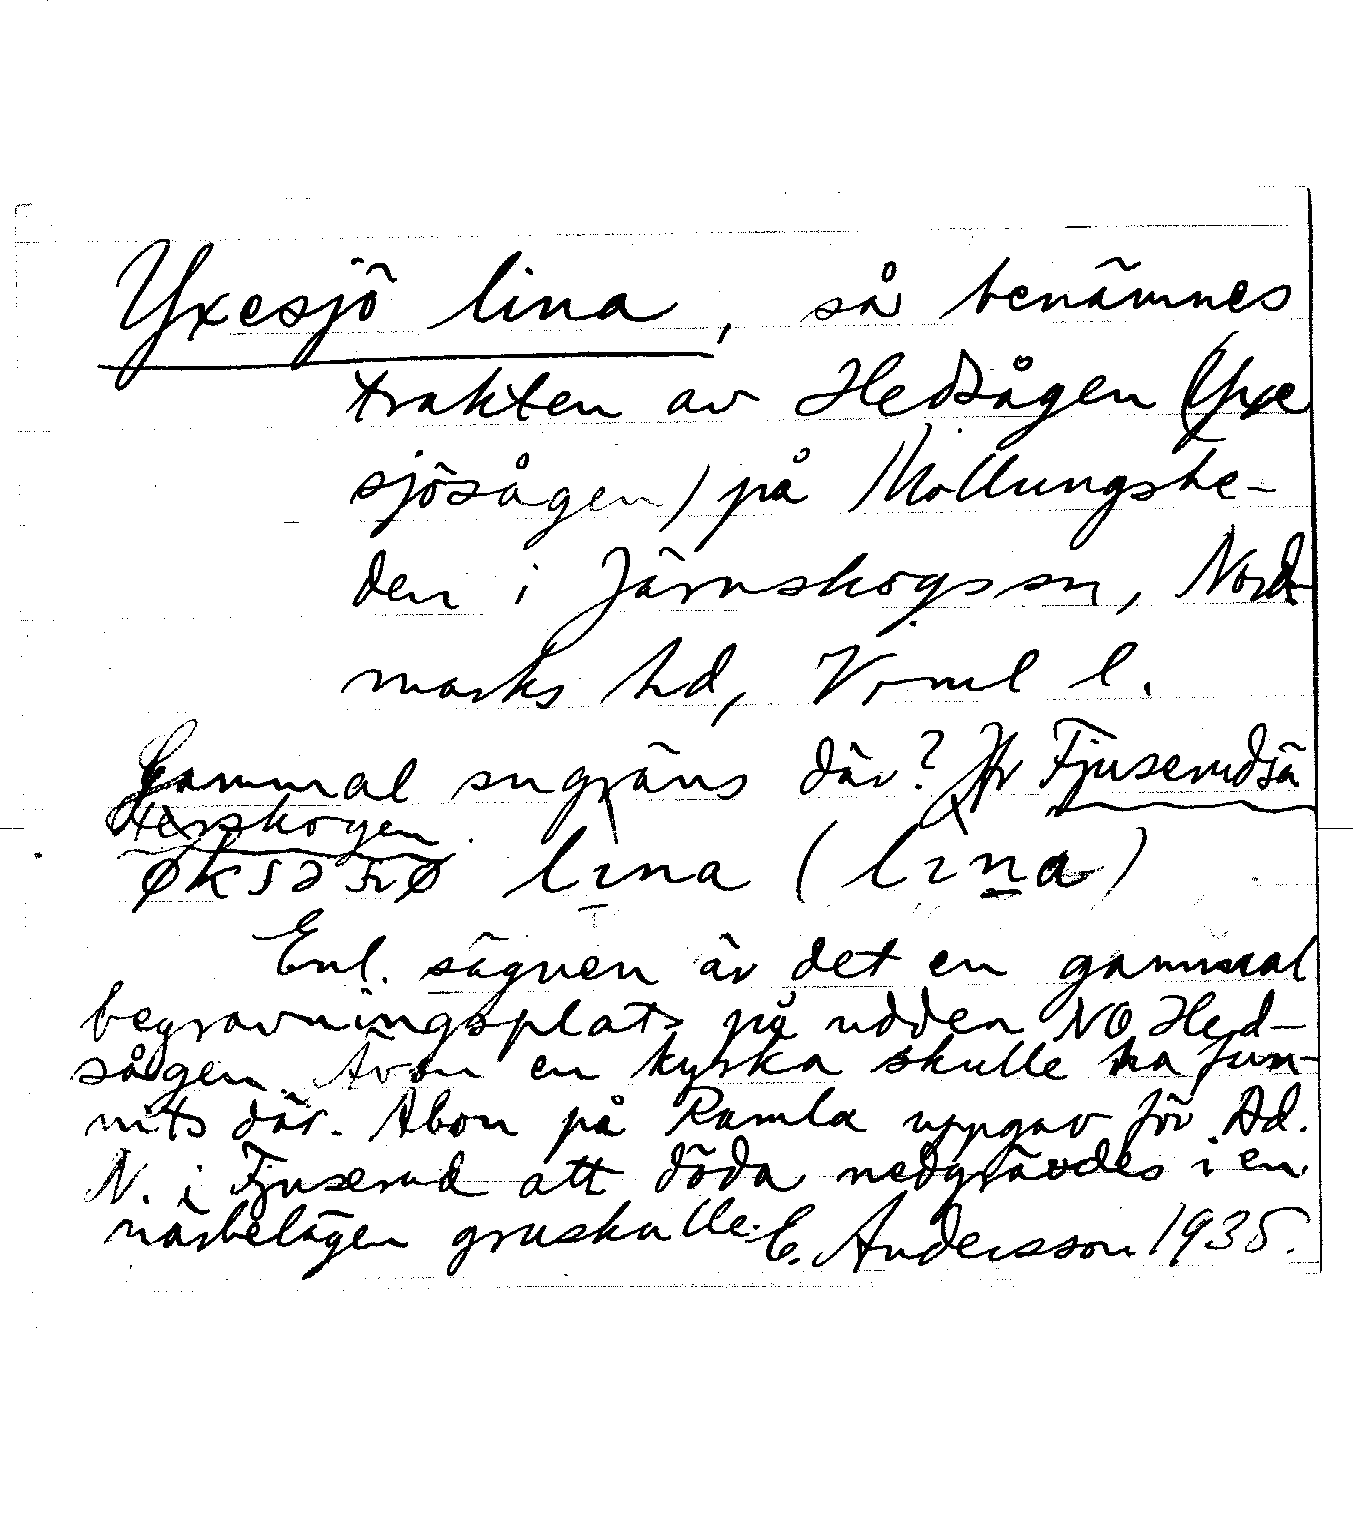 Yxesjö lina, så benämnes
trakten av Hedsågen (Yxe
sjösågen) på Mollungshe-
den i Järnskogs sn, Nord-
marks hd, Vrml l.
Gammal sngräns där? Jfr Fjuserudsä
terskogen
øksəʃø lina (lina)
Enl. sägnen är det en gammal
begravningsplats på udden NO Hed-
sågen. Även en kyrka skulle ha fun-
nits där. Åbon på Ramla uppgav för Ad.
N. i Fjuserud att döda nedgrävdes i en
närbelägen gruskulle. E. Andersson 1935.